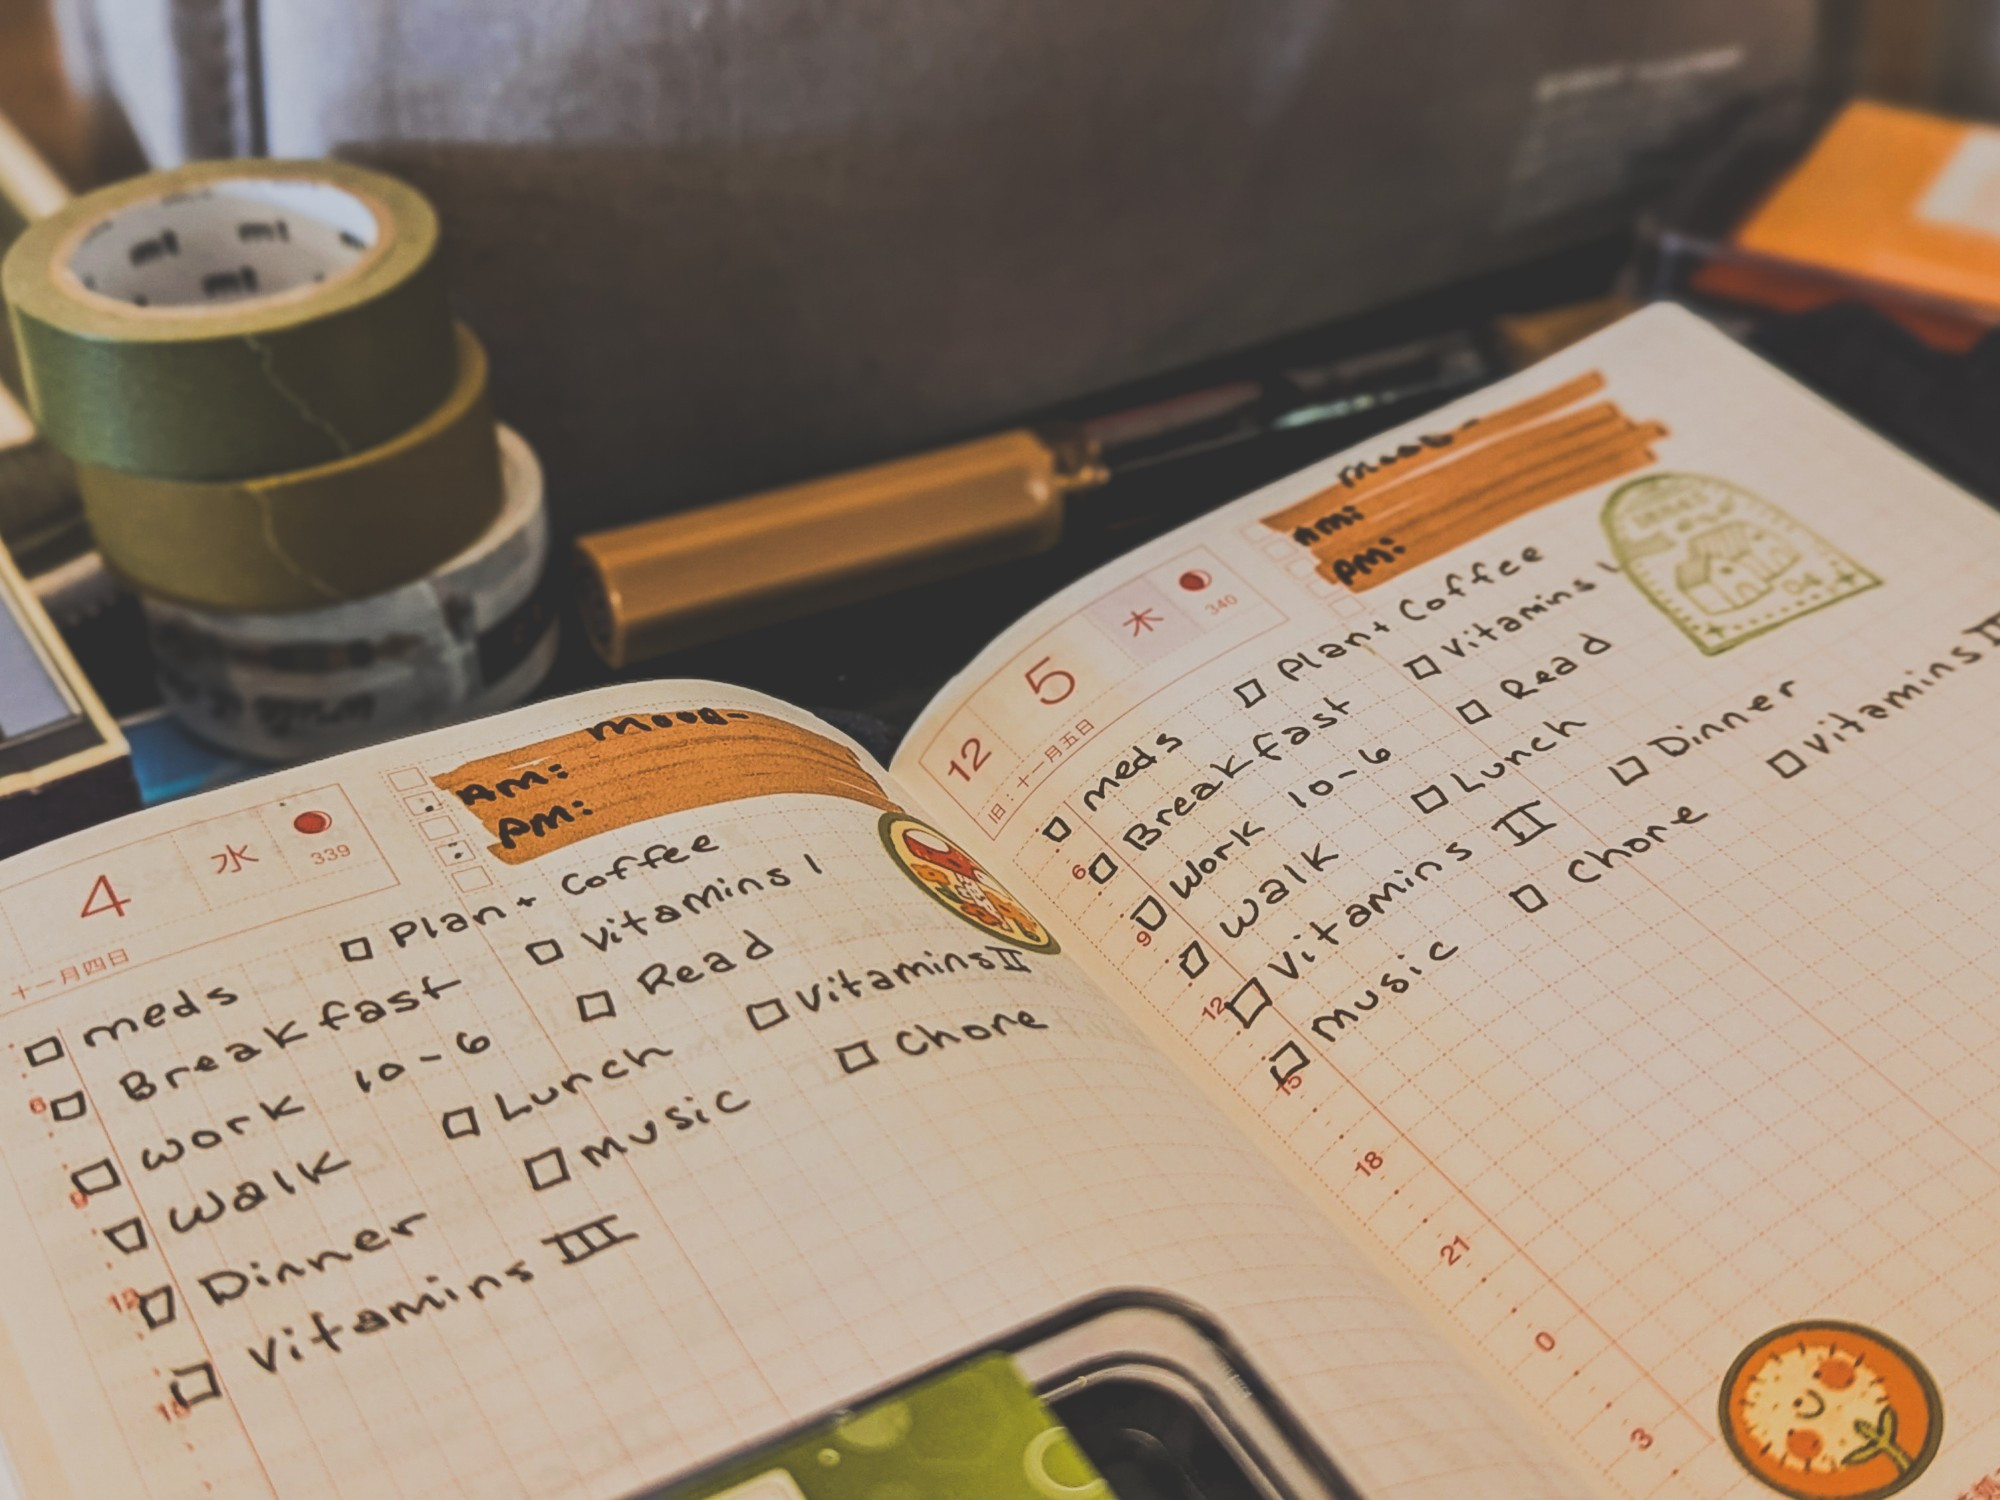 mt mt
mt
4 水 339
十一月四日
mood-
AM:
PM:
□ meds □ Plan + Coffee
6 □ Breakfast □ Vitamins I
□ Work 10-6 □ Read
9 □ Walk □ Lunch □ Vitamins II
12 □ Dinner □ music □ Chore
□ Vitamins III
15
12 5 木 340
旧:十一月五日
mood-
AM:
PM:
□ meds □ Plan + Coffee
6 □ Breakfast □ Vitamins I
□ Work 10-6 □ Read
9 □ Walk □ Lunch □ Dinner
12 □ Vitamins II □ Chore □ Vitamins III
□ music
15
18
21
0
3